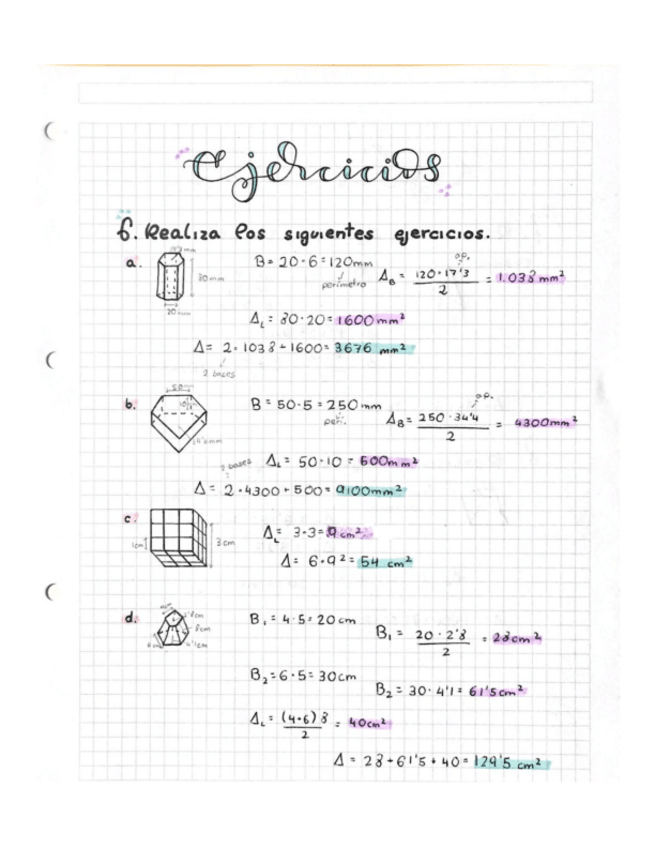 Ejercicios
6. Realiza los siguientes ejercicios.
a. 17'3 mm
80 mm
20 mm
B = 20·6 = 120mm
perímetro
ap.
A_B = 120·17'3 / 2 = 1.038 mm²
A_L = 80·20 = 1600 mm²
A = 2·1038 + 1600 = 3676 mm²
2 bases
b. 50mm
B = 50·5 = 250 mm
peri.
ap.
A_B = 250·34'4 / 2 = 4300mm²
A_L = 50·10 = 500mm²
2 bases
A = 2·4300 + 500 = 9100mm²
c. 1cm
3 cm
A_L = 3·3 = 9 cm²
A = 6·9² = 54 cm²
d.
8cm
4'1cm
B₁ = 4·5 = 20 cm
B₁ = 20·2'8 / 2 = 28cm²
B₂ = 6·5 = 30cm
B₂ = 30·4'1 = 61'5cm²
A_L = (4+6)8 / 2 = 40cm²
A = 28 + 61'5 + 40 = 129'5 cm²